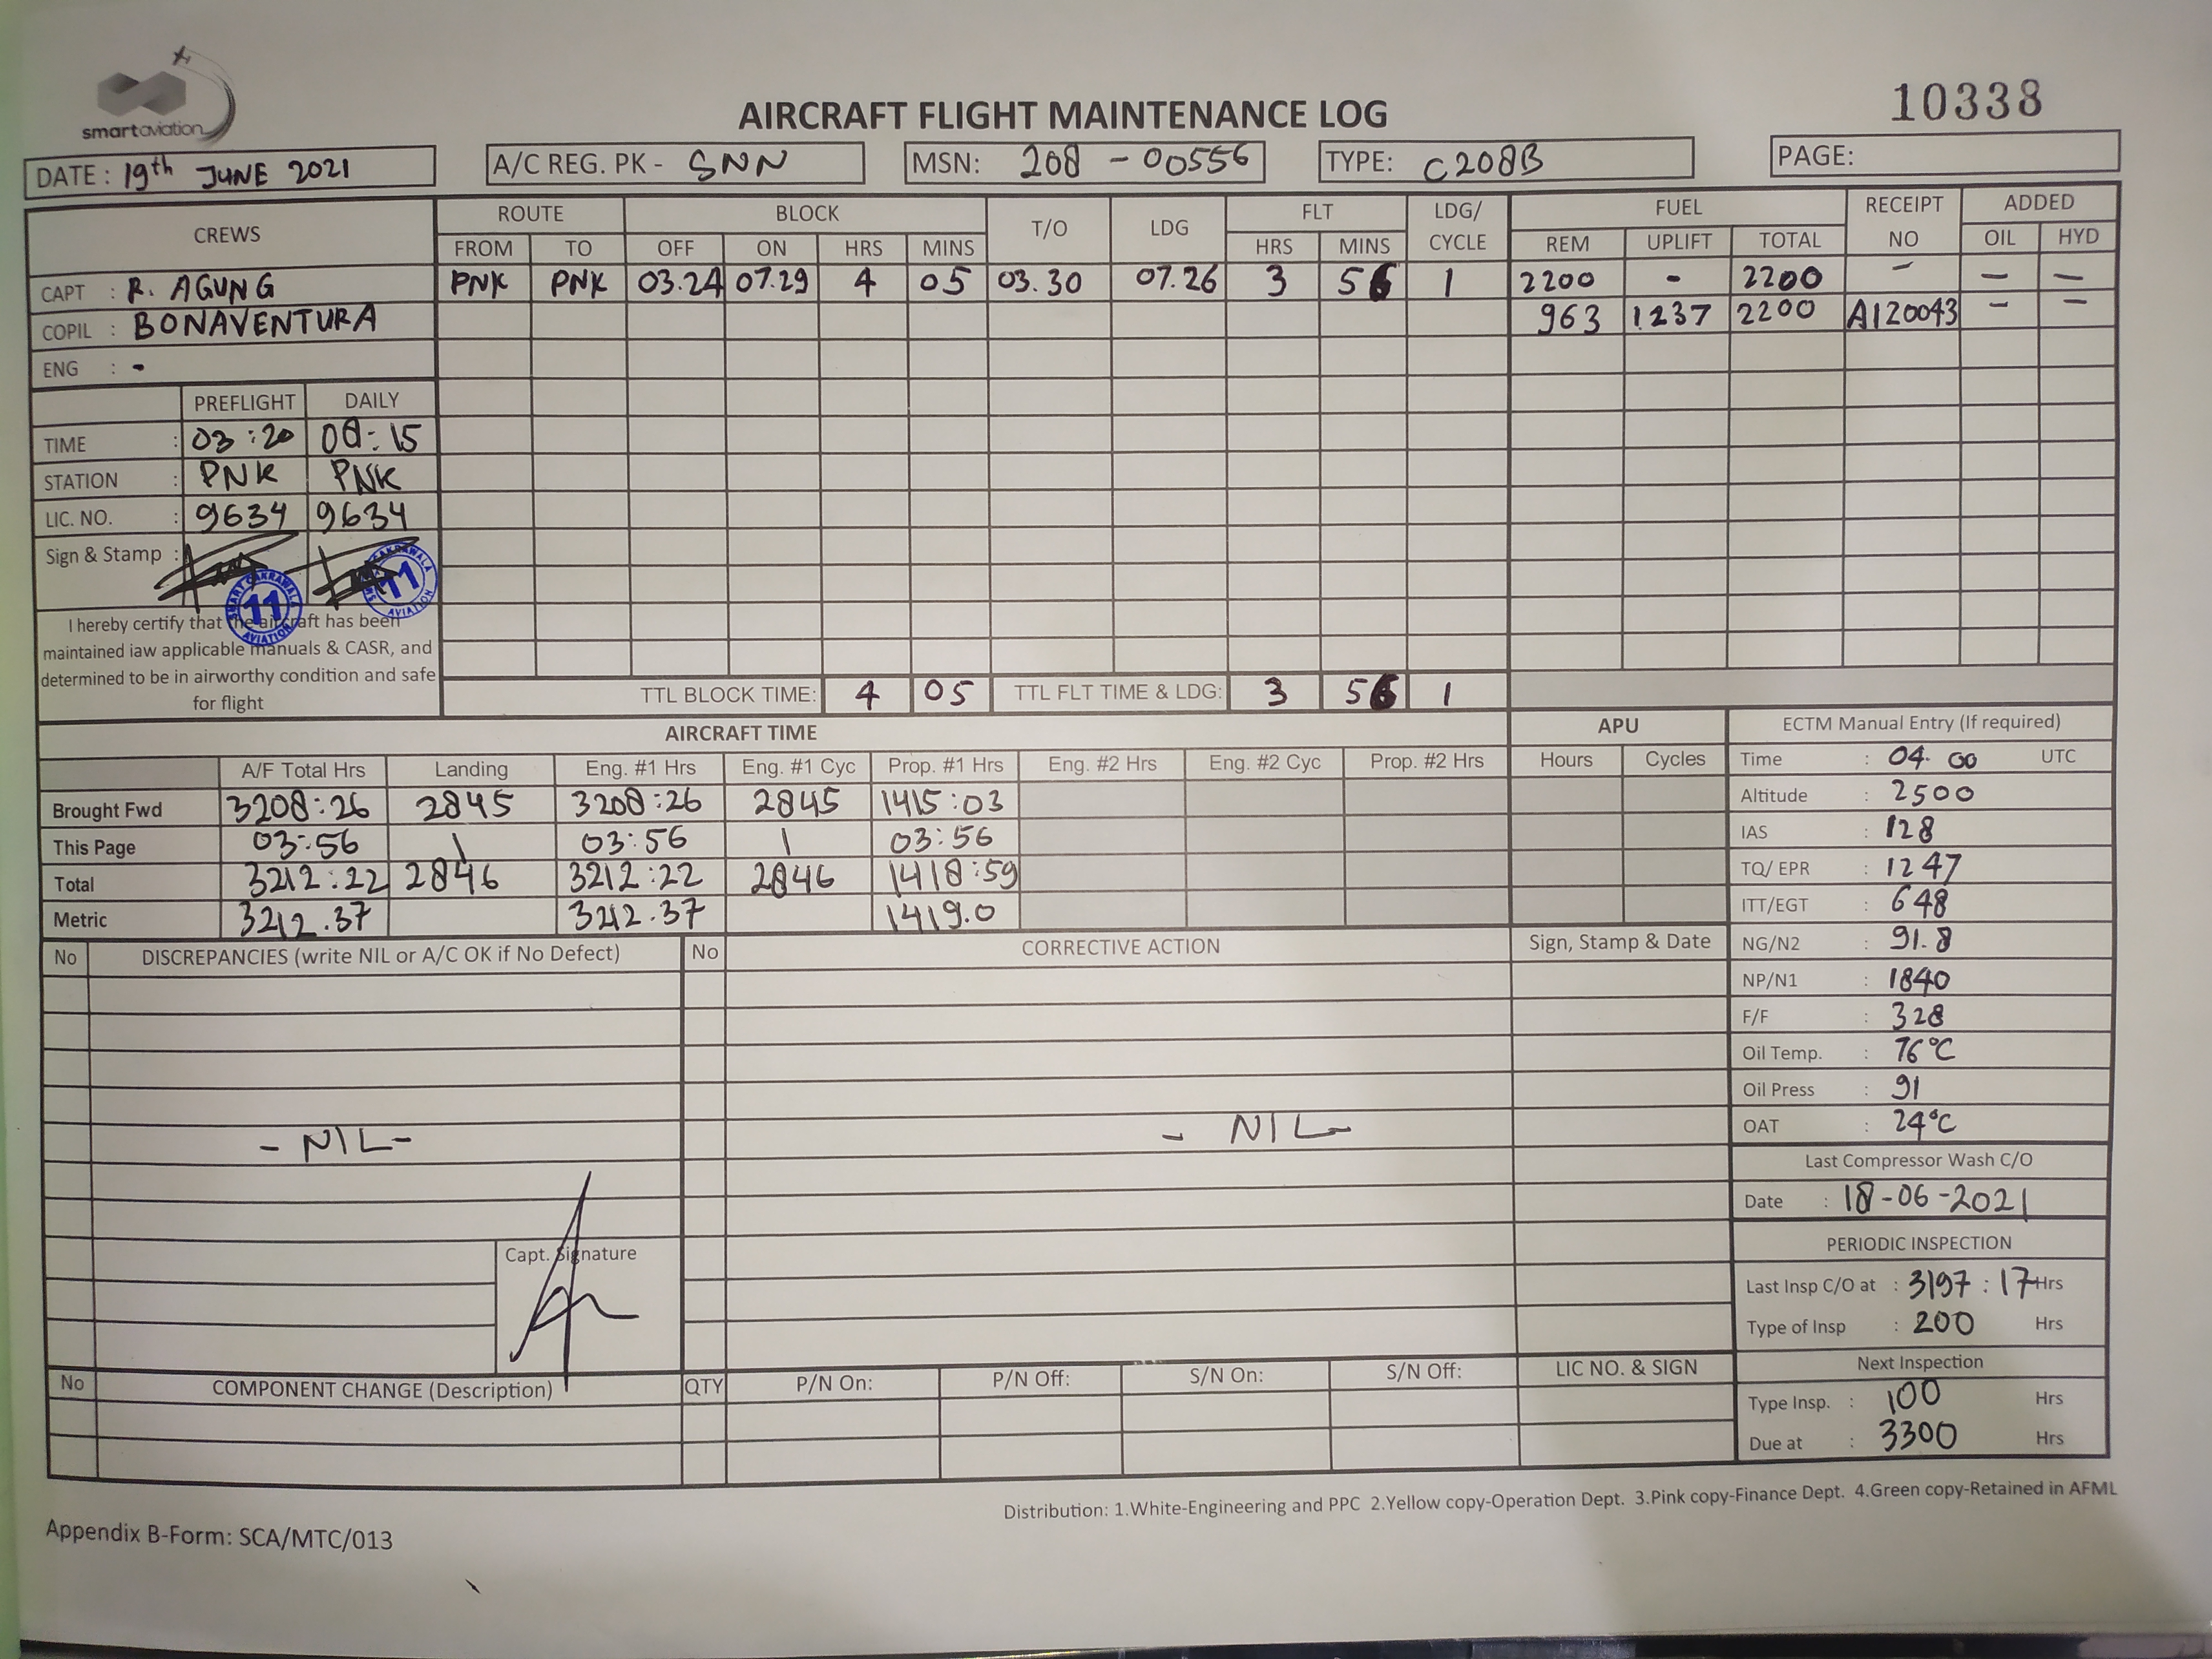 smartaviation
AIRCRAFT FLIGHT MAINTENANCE LOG
10338
DATE : 19th JUNE 2021 A/C REG. PK - SNN MSN: 208 - 00556 TYPE: C208B PAGE:
CREWS ROUTE BLOCK T/O LDG FLT LDG/ CYCLE FUEL RECEIPT NO ADDED
FROM TO OFF ON HRS MINS HRS MINS REM UPLIFT TOTAL OIL HYD
CAPT : R. AGUNG PNK PNK 03.24 07.29 4 05 03.30 07.26 3 56 1 2200 - 2200 - - -
COPIL : BONAVENTURA 963 1237 2200 A120043 - -
ENG : -
PREFLIGHT DAILY
TIME : 03:20 08:15
STATION : PNK PNK
LIC. NO. : 9634 9634
Sign & Stamp :
SMART CAKRAWALA AVIATION 11
SMART CAKRAWALA AVIATION 11
I hereby certify that the aircraft has been
maintained iaw applicable manuals & CASR, and
determined to be in airworthy condition and safe
for flight
TTL BLOCK TIME: 4 05 TTL FLT TIME & LDG: 3 56 1
AIRCRAFT TIME APU
A/F Total Hrs Landing Eng. #1 Hrs Eng. #1 Cyc Prop. #1 Hrs Eng. #2 Hrs Eng. #2 Cyc Prop. #2 Hrs Hours Cycles
Brought Fwd 3208:26 2845 3208:26 2845 1415:03
This Page 03:56 1 03:56 1 03:56
Total 3212:22 2846 3212:22 2846 1418:59
Metric 3212.37 3212.37 1419.0
ECTM Manual Entry (If required)
Time : 04.00 UTC
Altitude : 2500
IAS : 128
TQ/ EPR : 1247
ITT/EGT : 648
NG/N2 : 91.8
NP/N1 : 1840
F/F : 328
Oil Temp. : 76°C
Oil Press : 91
OAT : 24°C
Last Compressor Wash C/O
Date : 18-06-2021
PERIODIC INSPECTION
Last Insp C/O at : 3197:17 Hrs
Type of Insp : 200 Hrs
Next Inspection
Type Insp. : 100 Hrs
Due at : 3300 Hrs
No DISCREPANCIES (write NIL or A/C OK if No Defect) No CORRECTIVE ACTION Sign, Stamp & Date
- NIL - - NIL -
Capt. Signature
No COMPONENT CHANGE (Description) QTY P/N On: P/N Off: S/N On: S/N Off: LIC NO. & SIGN
Distribution: 1.White-Engineering and PPC 2.Yellow copy-Operation Dept. 3.Pink copy-Finance Dept. 4.Green copy-Retained in AFML
Appendix B-Form: SCA/MTC/013